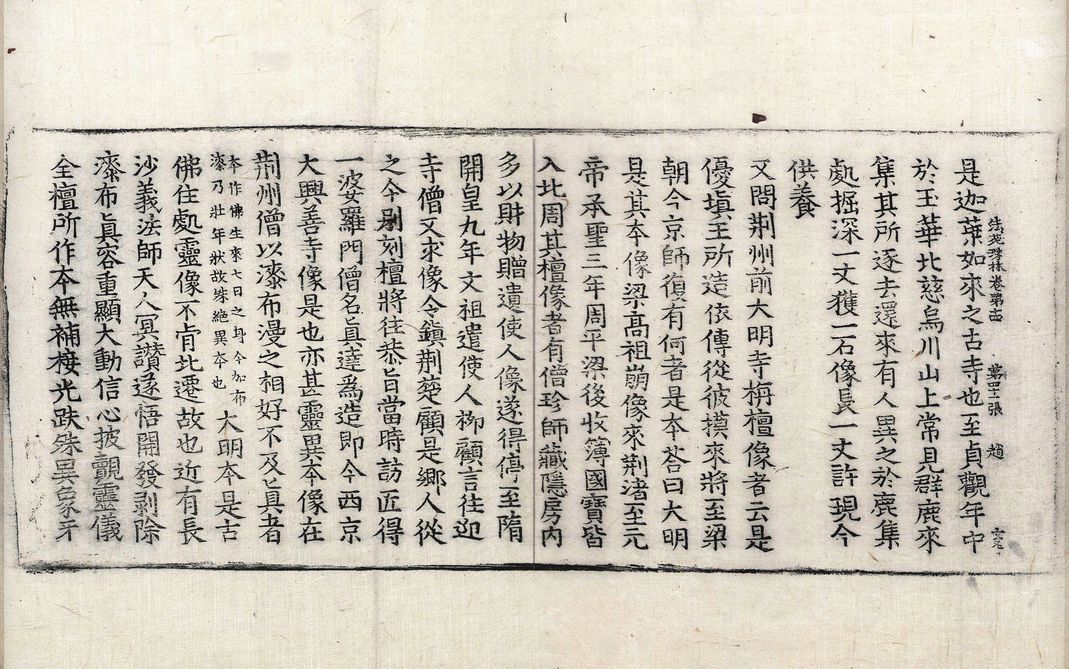 是迦葉如來之古寺也至貞觀年中
法苑珠林卷第十四 第四十二張 趙
於玉華北慈烏川山上常見群鹿來
集其所逐去還來有人異之於鹿集
處掘深一丈獲一石像長一丈許現今
供養
又問荆州前大明寺栴檀像者云是
優塡王所造依傳從彼摸來將至梁
朝今京師復有何者是本荅曰大明
是其本像梁高祖崩像來荆渚至元
帝承聖三年周平梁後收薄國寶皆
入北周其檀像者有僧珎師藏隱房內
多以財物贈遺使人像遂得停至隋
開皇九年文祖遣使人柳顧言往迎
寺僧又求像令鎭荆楚顧是鄉人從
之令別刻檀將往恭旨當時訪匠得
一婆羅門僧名眞達爲造即今西京
大興善寺像是也亦甚靈異本像在
荆州僧以漆布漫之相好不及眞者
本作佛生來七日之身今加布
漆乃壯年狀故殊絶異本也
大明本是古
佛住處靈像不肯北遷故也近有長
沙義法師天人冥讚遂悟開發剥除
漆布眞容重顯大動信心披覿靈儀
全檀所作本無補棱光趺殊異象牙